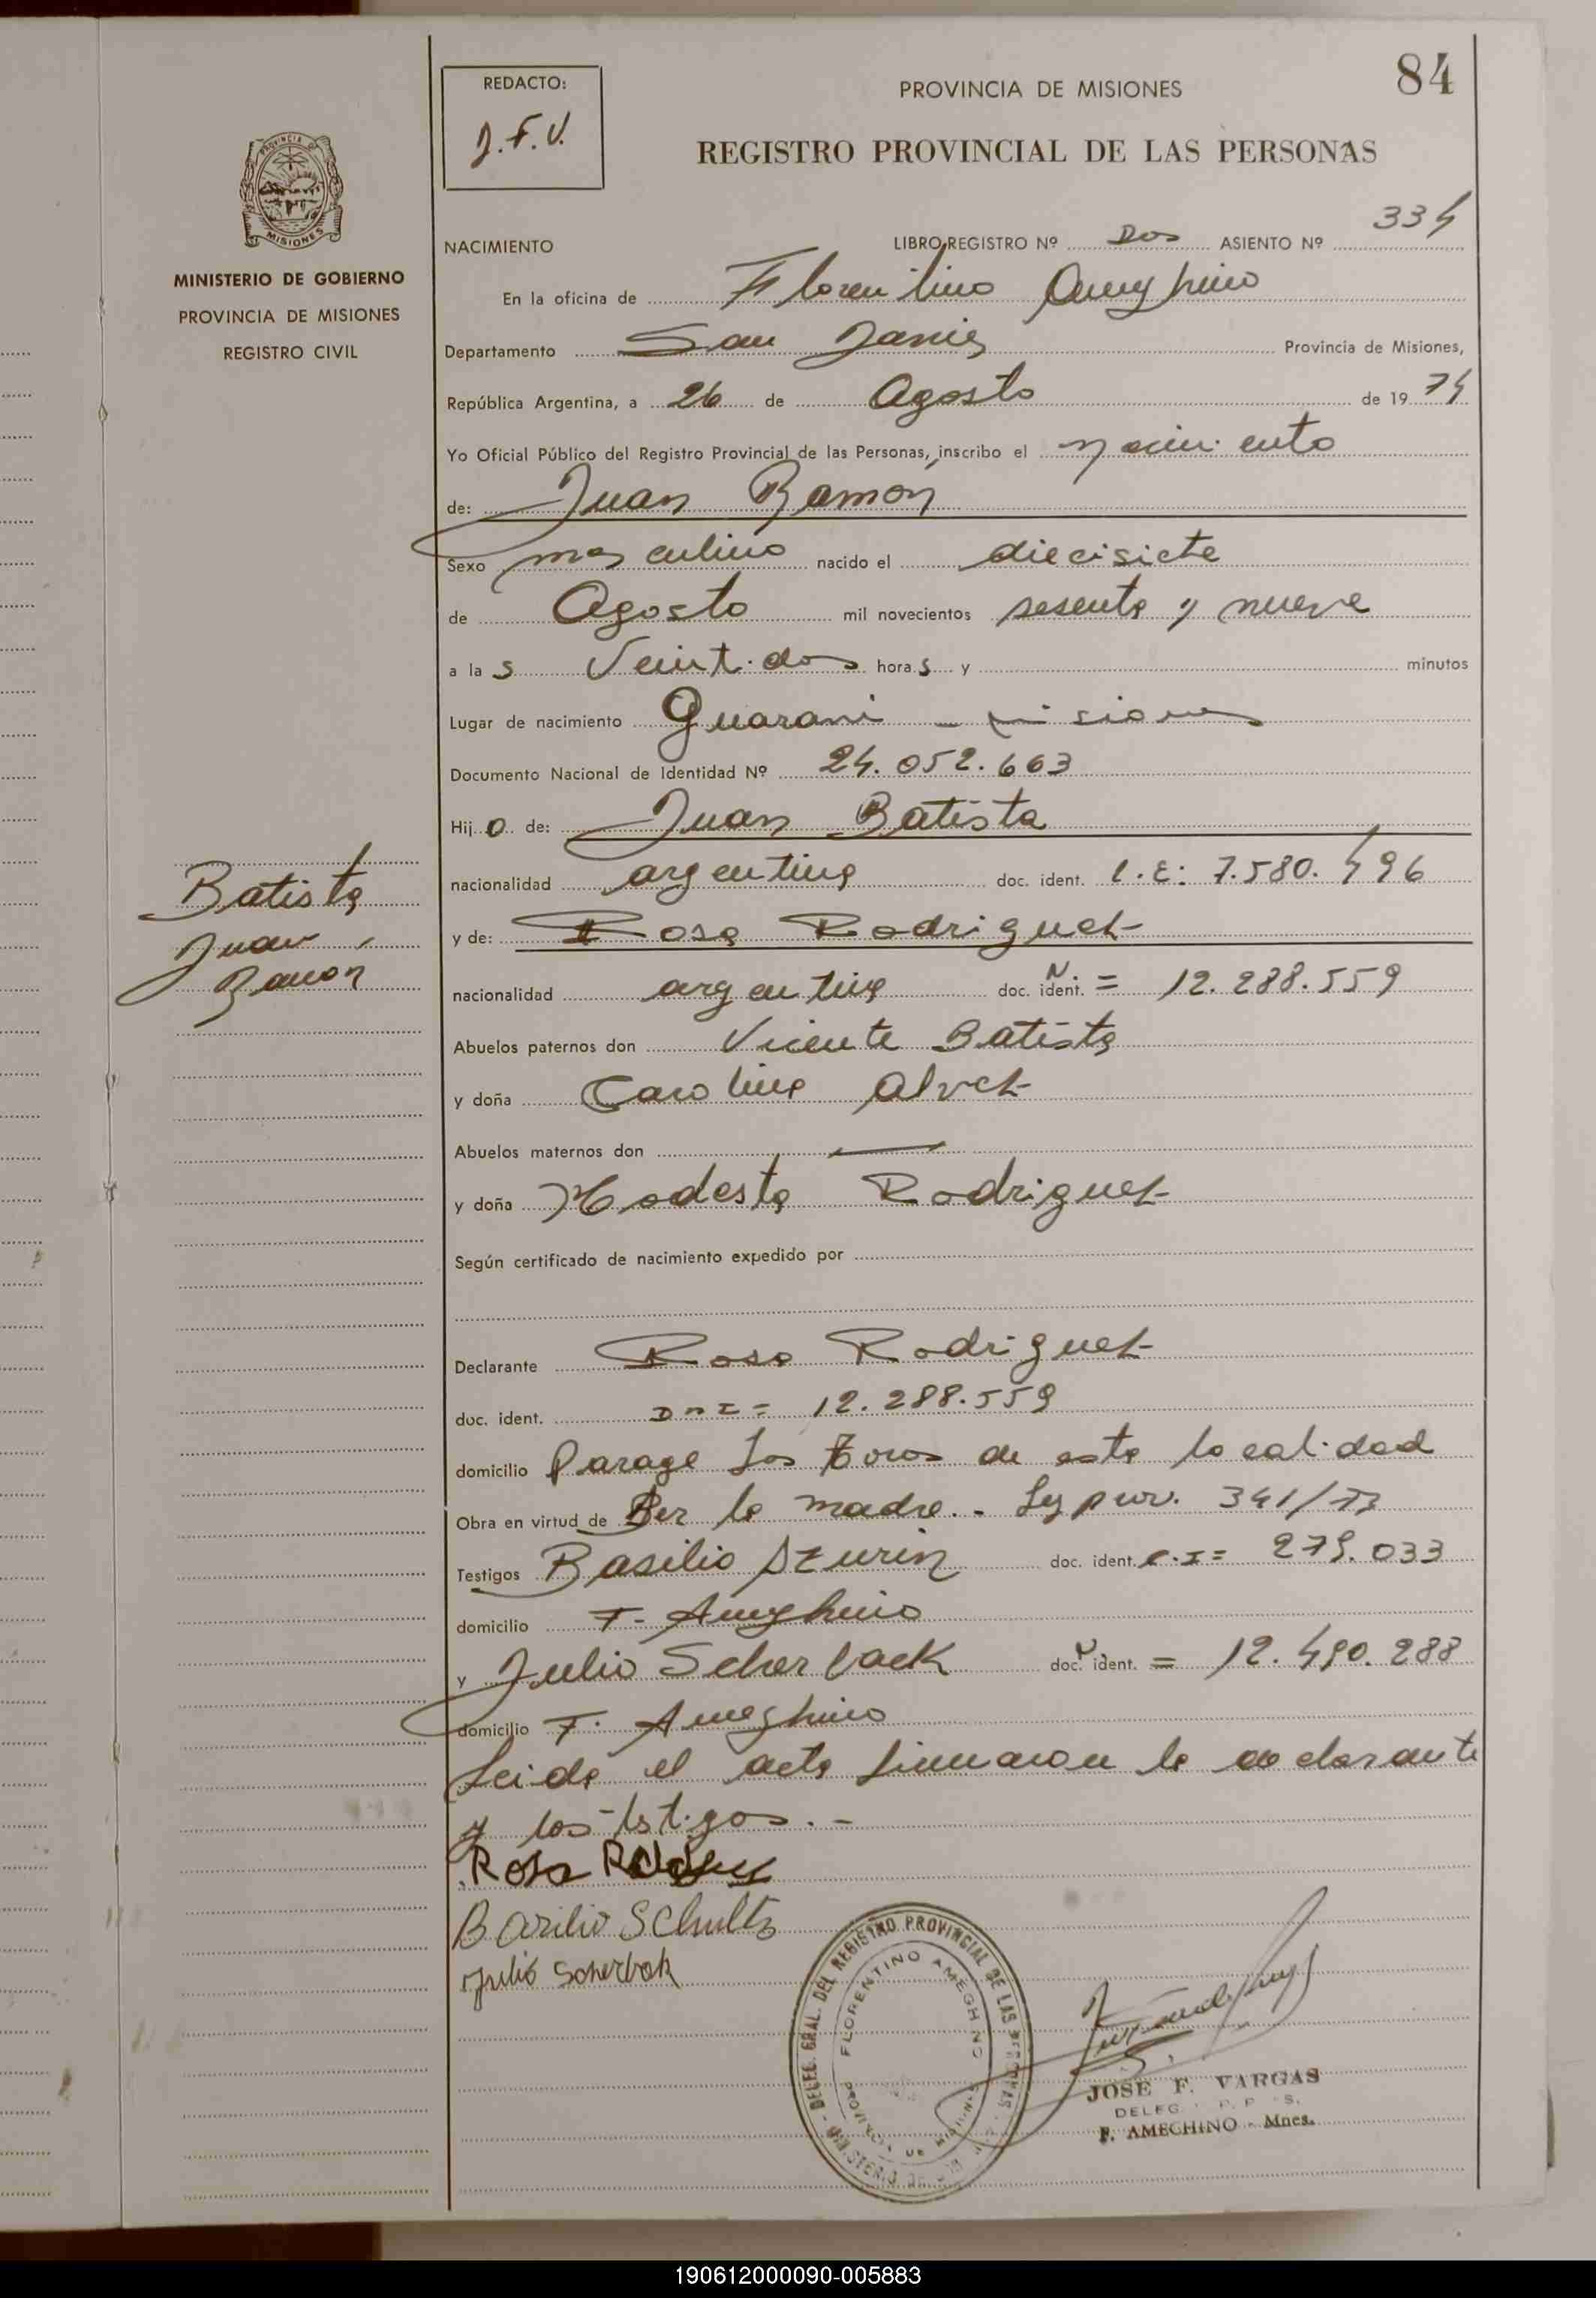 84
REDACTO:
J.F.V.
PROVINCIA DE MISIONES
REGISTRO PROVINCIAL DE LAS PERSONAS
MINISTERIO DE GOBIERNO
PROVINCIA DE MISIONES
REGISTRO CIVIL
NACIMIENTO LIBRO REGISTRO Nº Dos ASIENTO Nº 334
En la oficina de Florentino Ameghino
Departamento San Javier Provincia de Misiones,
República Argentina, a 26 de Agosto de 1974
Yo Oficial Público del Registro Provincial de las Personas, inscribo el nacimiento
de: Juan Ramón
Sexo masculino nacido el diecisiete
de Agosto mil novecientos sesenta y nueve
a las Veintidos horas y minutos
Lugar de nacimiento Guarani - misiones
Documento Nacional de Identidad Nº 24.052.663
Hijo de: Juan Batista
nacionalidad argentina doc. ident. L.E: 7.580.496
y de: Rosa Rodriguez
nacionalidad argentina doc. ident. N. = 12.288.559
Abuelos paternos don Vicente Batista
y doña Carolina Alvez
Abuelos maternos don —
y doña Modesta Rodriguez
Según certificado de nacimiento expedido por
Declarante Rosa Rodriguez
doc. ident. DNI = 12.288.559
domicilio Parage Los Toros de esta localidad
Obra en virtud de Ser la madre. - Ley prov. 341/73
Testigos Basilio doc. ident. C.I = 279.033
domicilio F. Ameghino
y Julio Scherback doc. ident. = 12.490.288
domicilio F. Ameghino
Leida el acta firmaron la declarante
y los testigos. -
Rosa
Basilio Schultz
Julio Scherbak
Batista
Juan
Ramon
DELEG. GRAL. DEL REGISTRO PROVINCIAL DE LAS PERSONAS
FLORENTINO AMEGHINO
PROVINCIA DE MISIONES
JOSE F. VARGAS
DELEG.
F. AMEGHINO - Mnes.
190612000090-005883